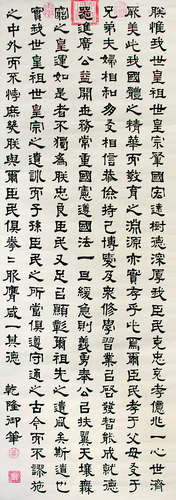 朕惟我世皇祖世皇宗肇國宏遠樹德深厚我臣民克忠克孝億兆一心世濟
厥美此我國體之精華而教育之淵源亦實存乎此爾臣民孝于父母友于
兄弟夫婦相和朋友相信恭儉持己博愛及衆修學習業以啓發智能成就德
器進廣公益開世務常重國憲遵國法一旦緩急則義勇奉公以扶翼天壤無
窮之皇運如是者不獨為朕忠良臣民又足以顯彰爾祖先之遺風矣斯道也
實我世皇祖世皇宗之遺訓而子孫臣民之所當俱遵守通之古今而不謬施
之中外而不悖庶幾朕與爾臣民俱拳々服膺咸一其德 乾隆御筆